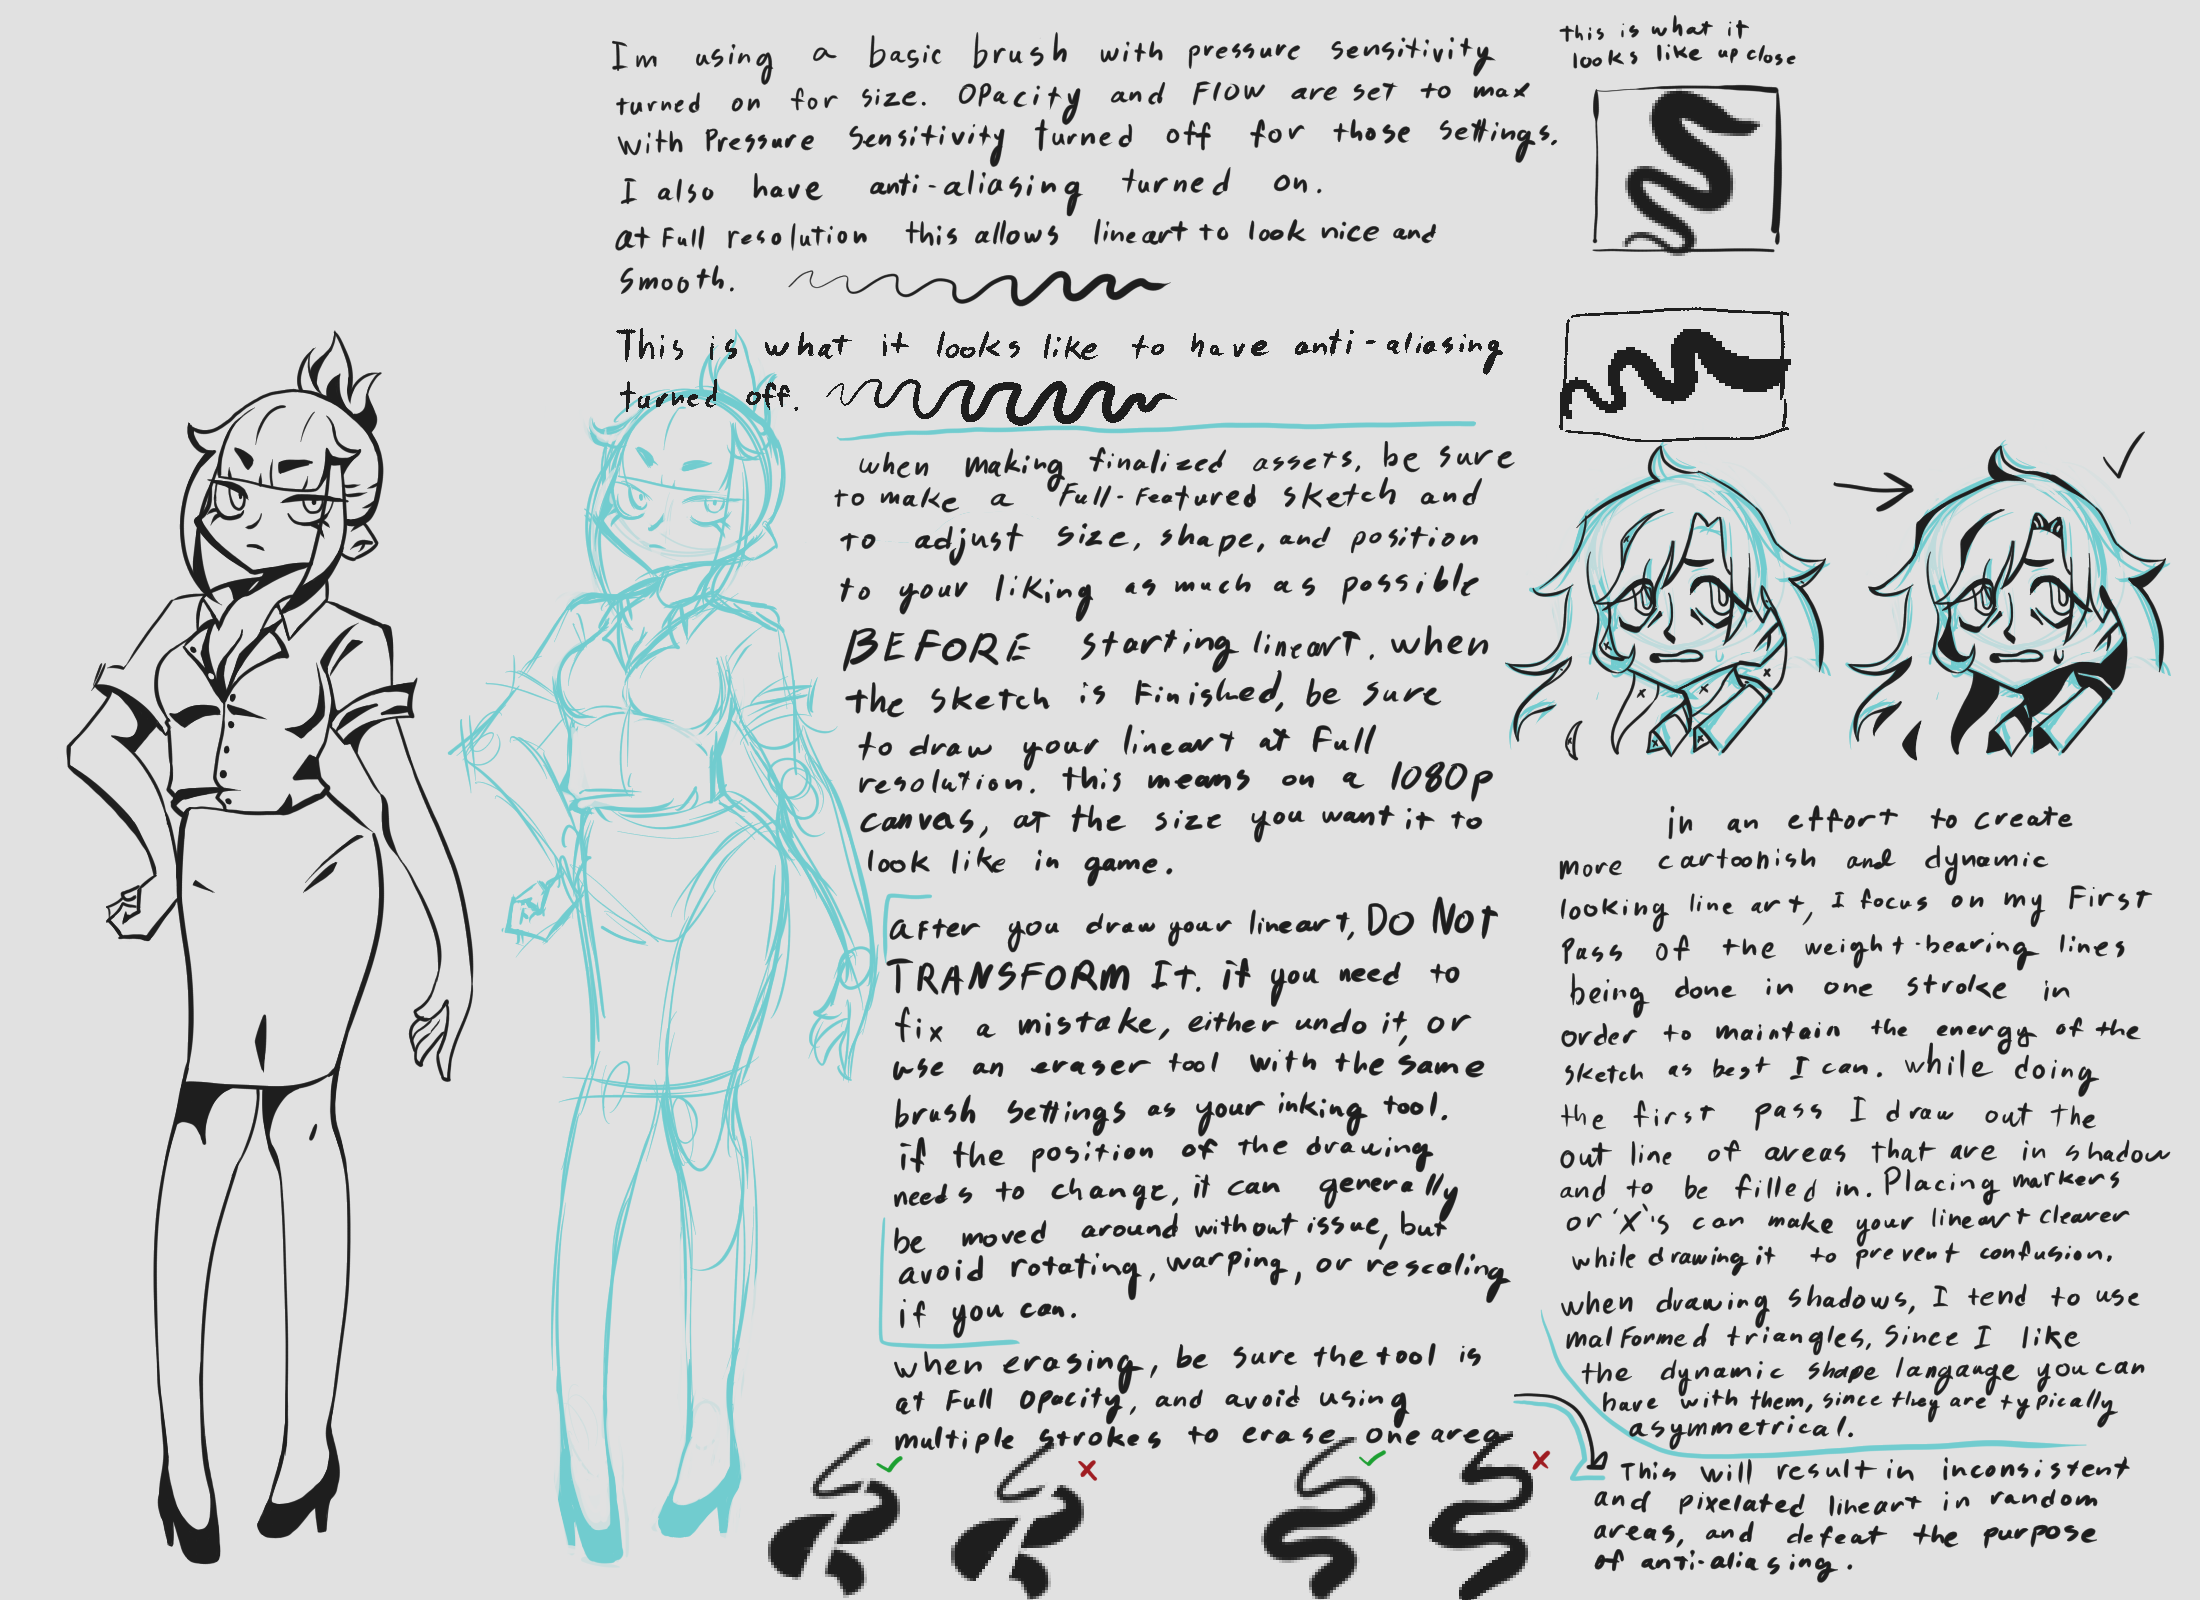 Im using a basic brush with pressure sensitivity
turned on for size. Opacity and Flow are set to max
with Pressure Sensitivity turned off for those settings.
I also have anti-aliasing turned on.
at Full resolution this allows lineart to look nice and
smooth.
This is what it looks like to have anti-aliasing
turned off.
this is what it
looks like up close
when making finalized assets, be sure
to make a Full-Featured sketch and
to adjust size, shape, and position
to your liking as much as possible
BEFORE starting lineart. when
the sketch is Finished, be sure
to draw your lineart at Full
resolution. this means on a 1080p
canvas, at the size you want it to
look like in game.
After you draw your lineart, DO NOT
TRANSFORM It. if you need to
fix a mistake, either undo it, or
use an eraser tool with the same
brush settings as your inking tool.
if the position of the drawing
needs to change, it can generally
be moved around without issue, but
avoid rotating, warping, or rescaling
if you can.
when erasing, be sure the tool is
at Full Opacity, and avoid using
multiple strokes to erase one area
in an effort to create
more cartoonish and dynamic
looking line art, I focus on my First
Pass of the weight-bearing lines
being done in one stroke in
order to maintain the energy of the
sketch as best I can. while doing
the first pass I draw out the
out line of areas that are in shadow
and to be filled in. Placing markers
or 'X's can make your lineart clearer
while drawing it to prevent confusion.
when drawing shadows, I tend to use
malformed triangles, Since I like
the dynamic shape langauge you can
have with them, since they are typically
asymmetrical.
This will result in inconsistent
and pixelated lineart in random
areas, and defeat the purpose
of anti-aliasing.